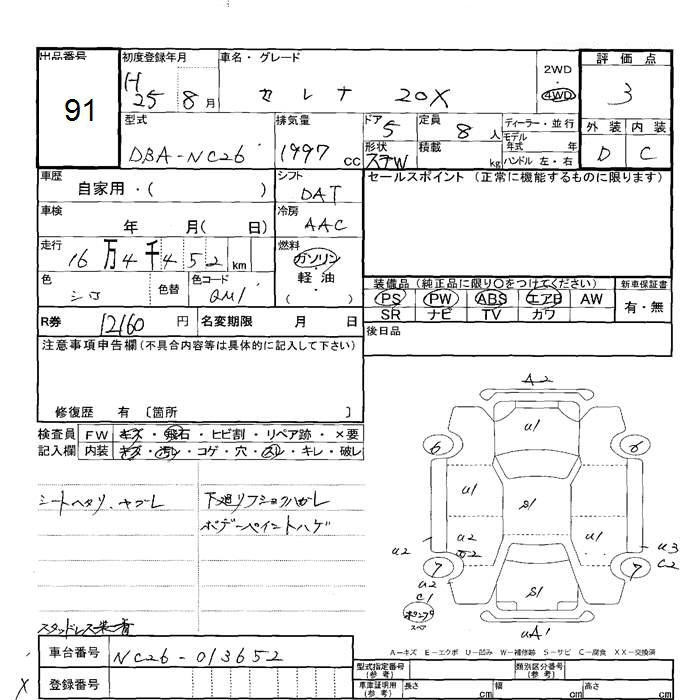 出品番号
91
初度登録年月
H 25 8月
車名・グレード
セレナ 20X
2WD
・
4WD
評価点
3
外装 内装
D C
型式
DBA-NC26
排気量
1997 cc
ドア
5
形状
ステW
定員
8 人
積載
kg
ディーラー・並行
モデル年式 年
ハンドル 左・右
車歴
自家用・( )
シフト
DAT
セールスポイント (正常に機能するものに限ります)
車検
年 月( 日)
冷房
AAC
走行
16万4千452 km
燃料
ガソリン
軽油
・( )
色
シロ
色替
色コード
QM1
装備品 (純正品に限り○をつけてください)
PS PW ABS エアB AW
SR ナビ TV カワ
新車保証書
有・無
R券
12160 円
名変期限 月 日
後日品
注意事項申告欄 (不具合内容等は具体的に記入して下さい)
修復歴 有 〔箇所 〕
検査員記入欄
FW キズ・飛石・ヒビ割・リペア跡・×要
内装 キズ・汚レ・コゲ・穴・スレ・キレ・破レ
シートヘタリ、ヤブレ
ボデーペイントハゲ
スタッドレス装着
A2
U1
6 6
U1 S1 U1
U2
U2
U3
C2
7 7
U2
C1
S1
スペア
UA1
A-キズ E-エクボ U-凹み W-補修跡 S-サビ C-腐食 XX-交換済
車台番号 NC26-013652
X
登録番号
型式指定番号
(参考)
類別区分番号
(参考)
車庫証明用
(参考)
長さ cm
幅 cm
高さ cm